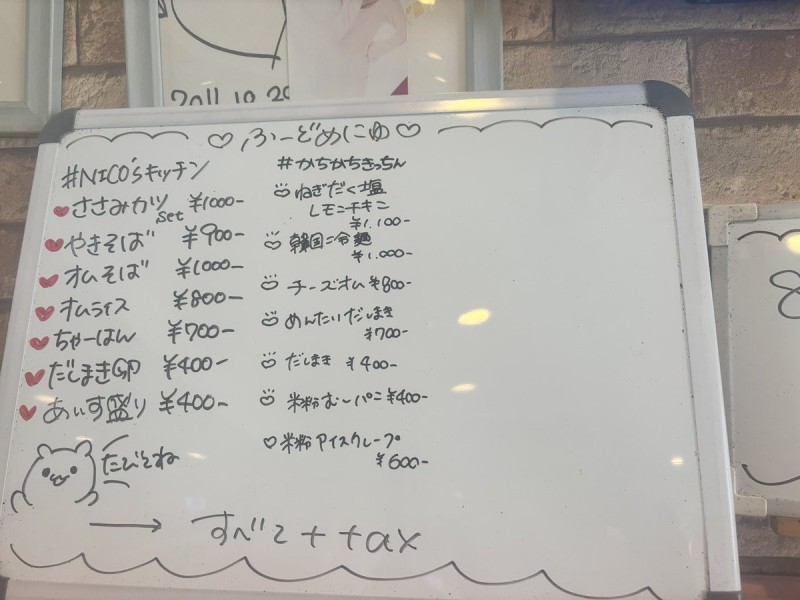 2011.10.29
ふーどめにゅ
#NICO'sキッチン
ささみカツ set ¥1000-
やきそば ¥900-
オムそば ¥1000-
オムライス ¥800-
ちゃーはん ¥700-
だしまき卵 ¥400-
あいす盛り ¥400-
たびてね
#かちかちきっちん
ねぎだく塩
レモンチキン
¥1.100-
韓国冷麺
¥1.000-
チーズオム ¥800-
めんたいだしまき
¥700-
だしまき ¥400-
米粉むしパン ¥400-
米粉アイスクレープ
¥600-
→ すべて + tax
8